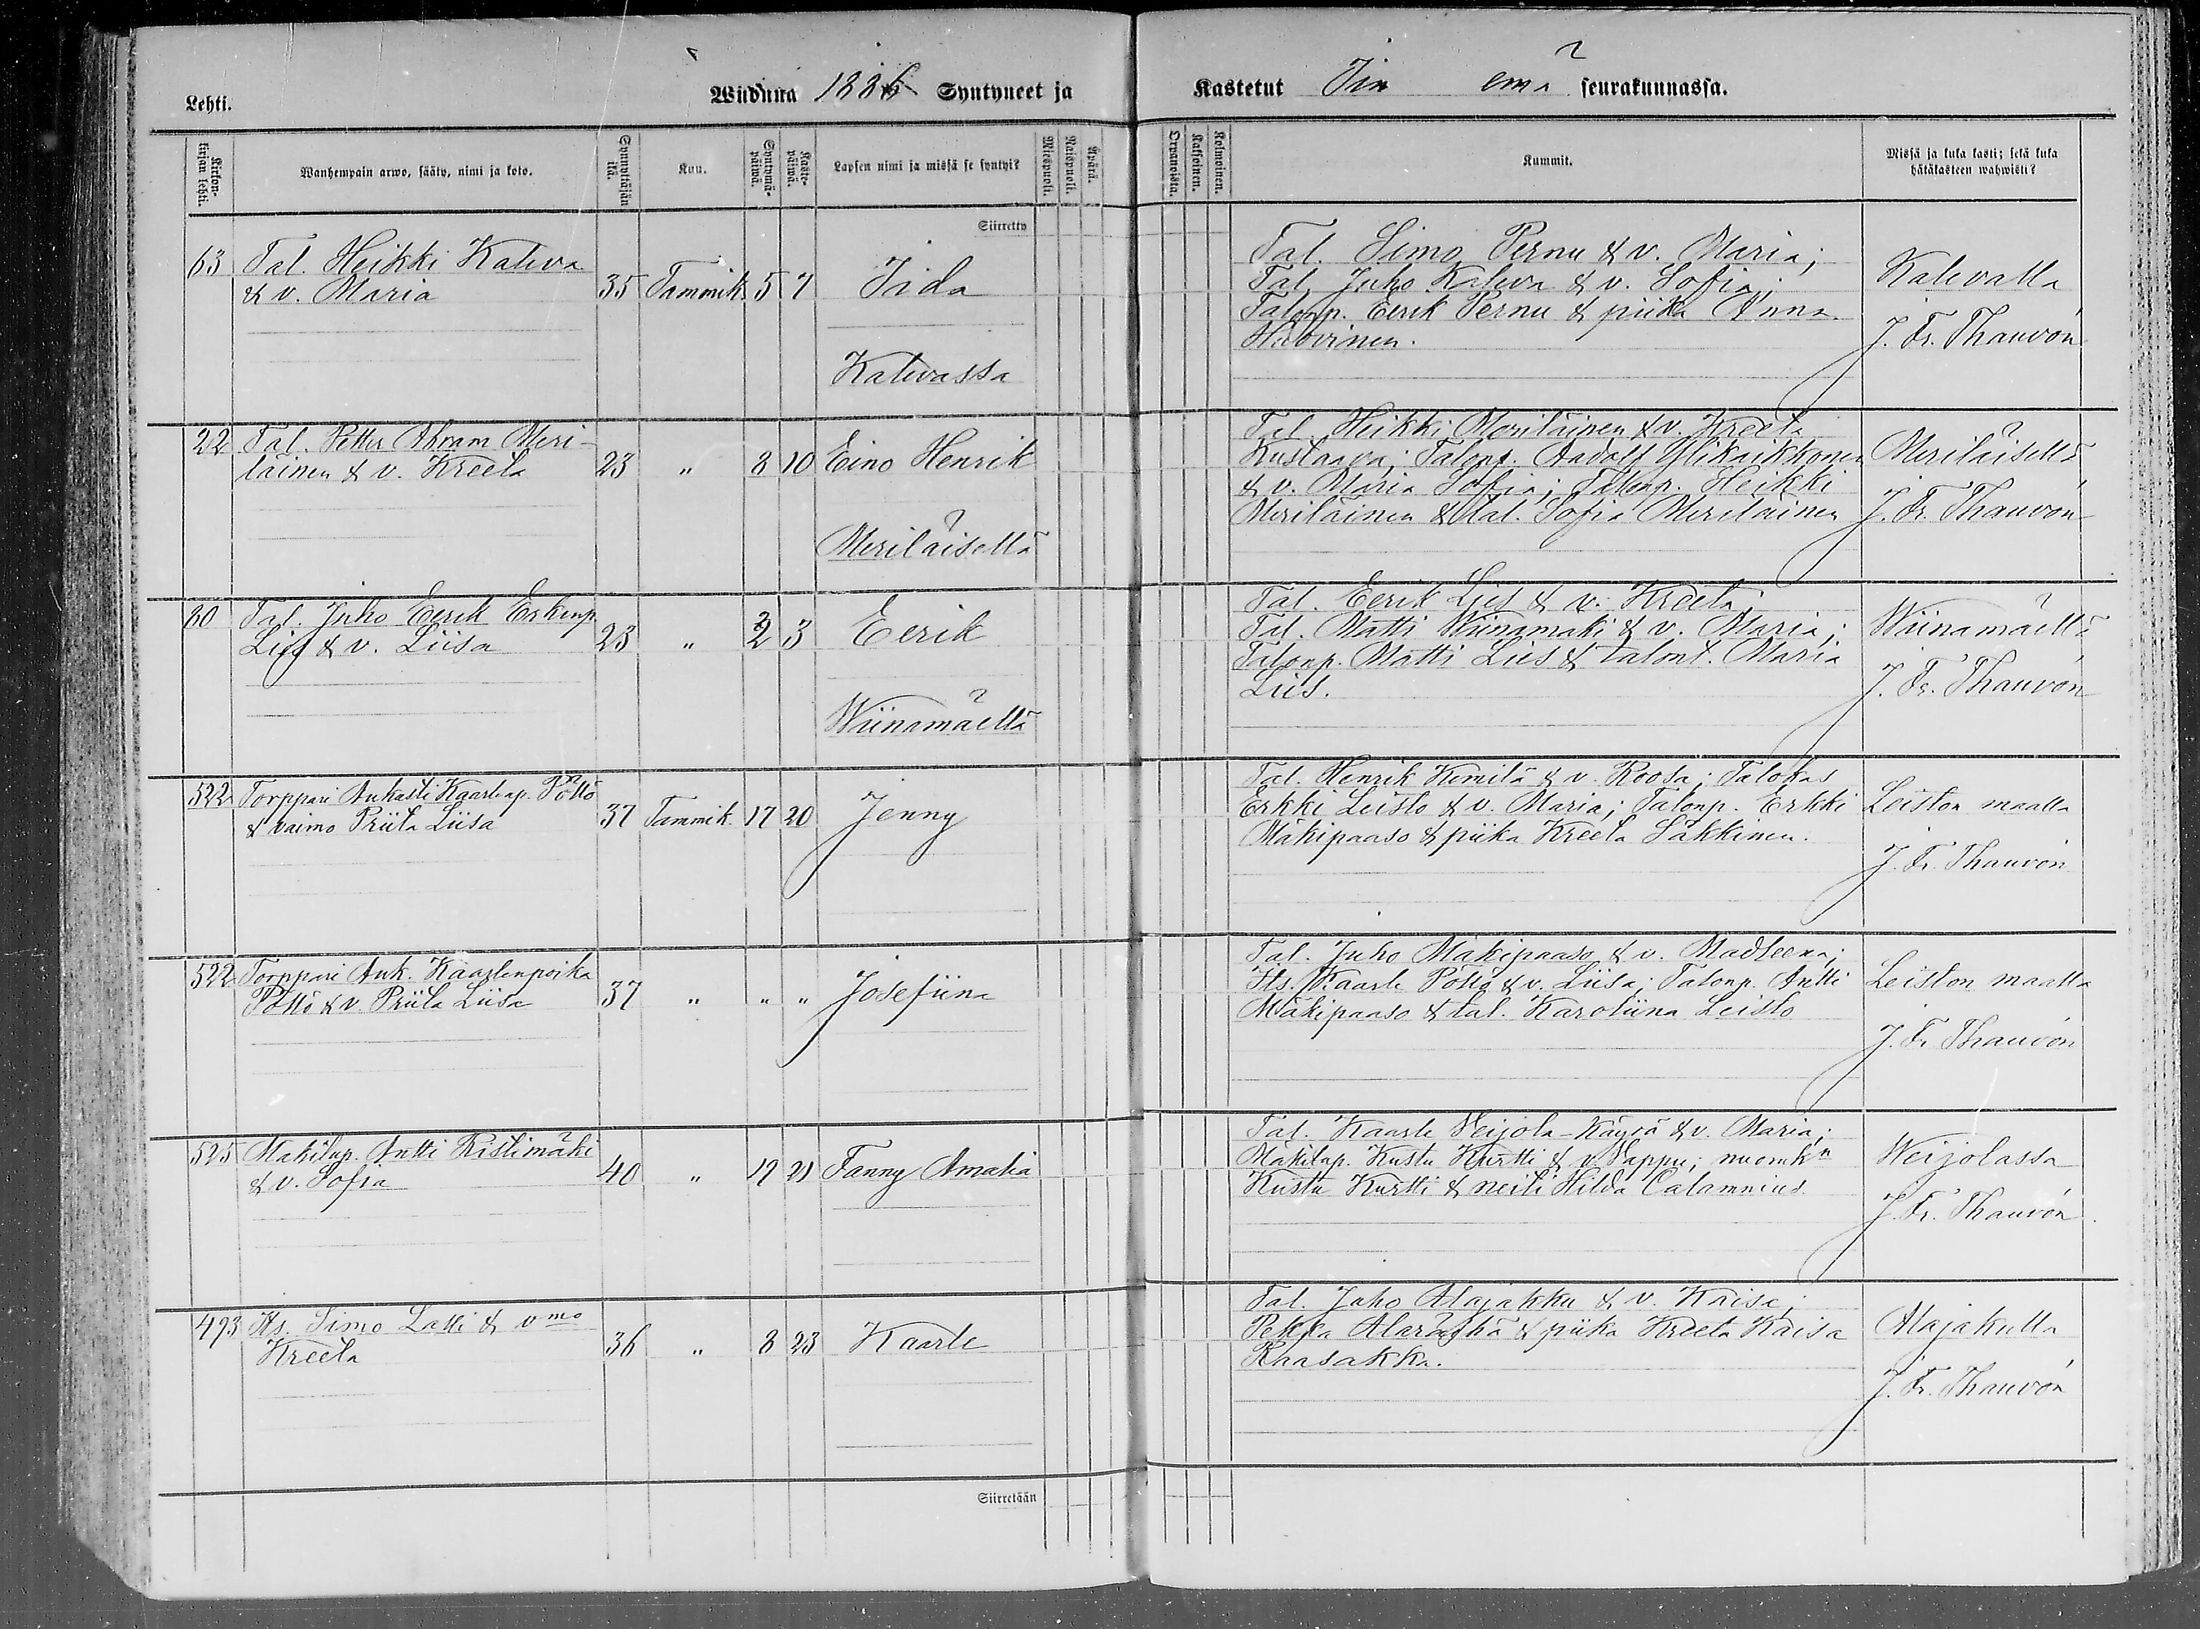 Lehti.
Wuonna 1886 Syntyneet ja
Kastetut Iin emä seurakunnassa.
Kirkonkirjan lehti.
Wanhempain arwo, sääty, nimi ja koto.
Synnyttäjän ikä.
Kuu.
Syntymäpäiwä.
Kastepäiwä.
Lapsen nimi ja missä se syntyi?
Miespuoli.
Naispuoli.
Äpärä.
Kaksoinen.
Kolmoinen.
Kummit.
Missä ja kuka kasti; sekä kuka
hätäkasteen wahwisti?
Siirretty
63 Tal. Heikki Kaleva
& v. Maria 35 Tammik. 5 7 Iida
Kalevassa
Tal. Simo Pernu & v. Maria;
Tal. Juho Kaleva & v. Sofia;
Talonp. Eerik Pernu & piika Anna
Huovinen.
Kalevalla
J. Fr. Thauvón
22 Tal. Petter Abram Meri-
läinen & v. Kreeta 23 " 8 10 Eino Henrik
Meriläisellä
Tal. Heikki Meriläinen & v. Kreeta
Kustaava; Talonp. Aadolf Ylikaikkonen
& v. Maria Sofia; Talonp. Heikki
Meriläinen & tal. Sofia Meriläinen
Meriläisellä
J. Fr. Thauvón
30 Tal. Juho Eerik Erkinp.
Lies & v. Liisa 23 " 2 3 Eerik
Wiinamäellä
Tal. Eerik Lies & v. Kreeta;
Tal. Matti Wiinamäki & v. Maria;
Talonp. Matti Lies & talont. Maria
Lies.
Wiinamäellä
J. Fr. Thauvón
522 Torppari Aukusti Kaarlenp. Pöttö
& vaimo Priita Liisa 37 Tammik. 17 20 Jenny
Tal. Henrik Kemilä & v. Roosa; Talokas
Erkki Leisto & v. Maria; Talonp. Erkki
Mäkipaaso & piika Kreeta Säkkinen.
Leiston maalla
J. Fr. Thauvón
522 Torppari Auk. Kaarlenpoika
Pöttö & v. Priita Liisa 37 " " " Josefiina
Tal. Juho Mäkipaaso & v. Madleena;
Its. Kaarle Pöttö & v. Liisa; Talonp. Antti
Mäkipaaso & tal. Karoliina Leisto
Leiston maalla
J. Fr. Thauvón
525 Mäkitup. Antti Ristimäki
& v. Sofia 40 " 19 21 Fanny Amalia
Tal. Kaarle Veijola-Käyrä & v. Maria;
Mäkitup. Kustu Kurtti & v. Vappu; nuomk.n
Kustu Kurtti & neiti Hilda Calamnius.
Weijolassa
J. Fr. Thauvón
493 Its. Simo Latti & vmo
Kreeta 36 " 8 23 Kaarle
Tal. Juho Alajakku & v. Kaisa;
Pekka Alaräihä & piika Kreeta Kaisa
Raasakka.
Alajakulla
J. Fr. Thauvón
Siirretään